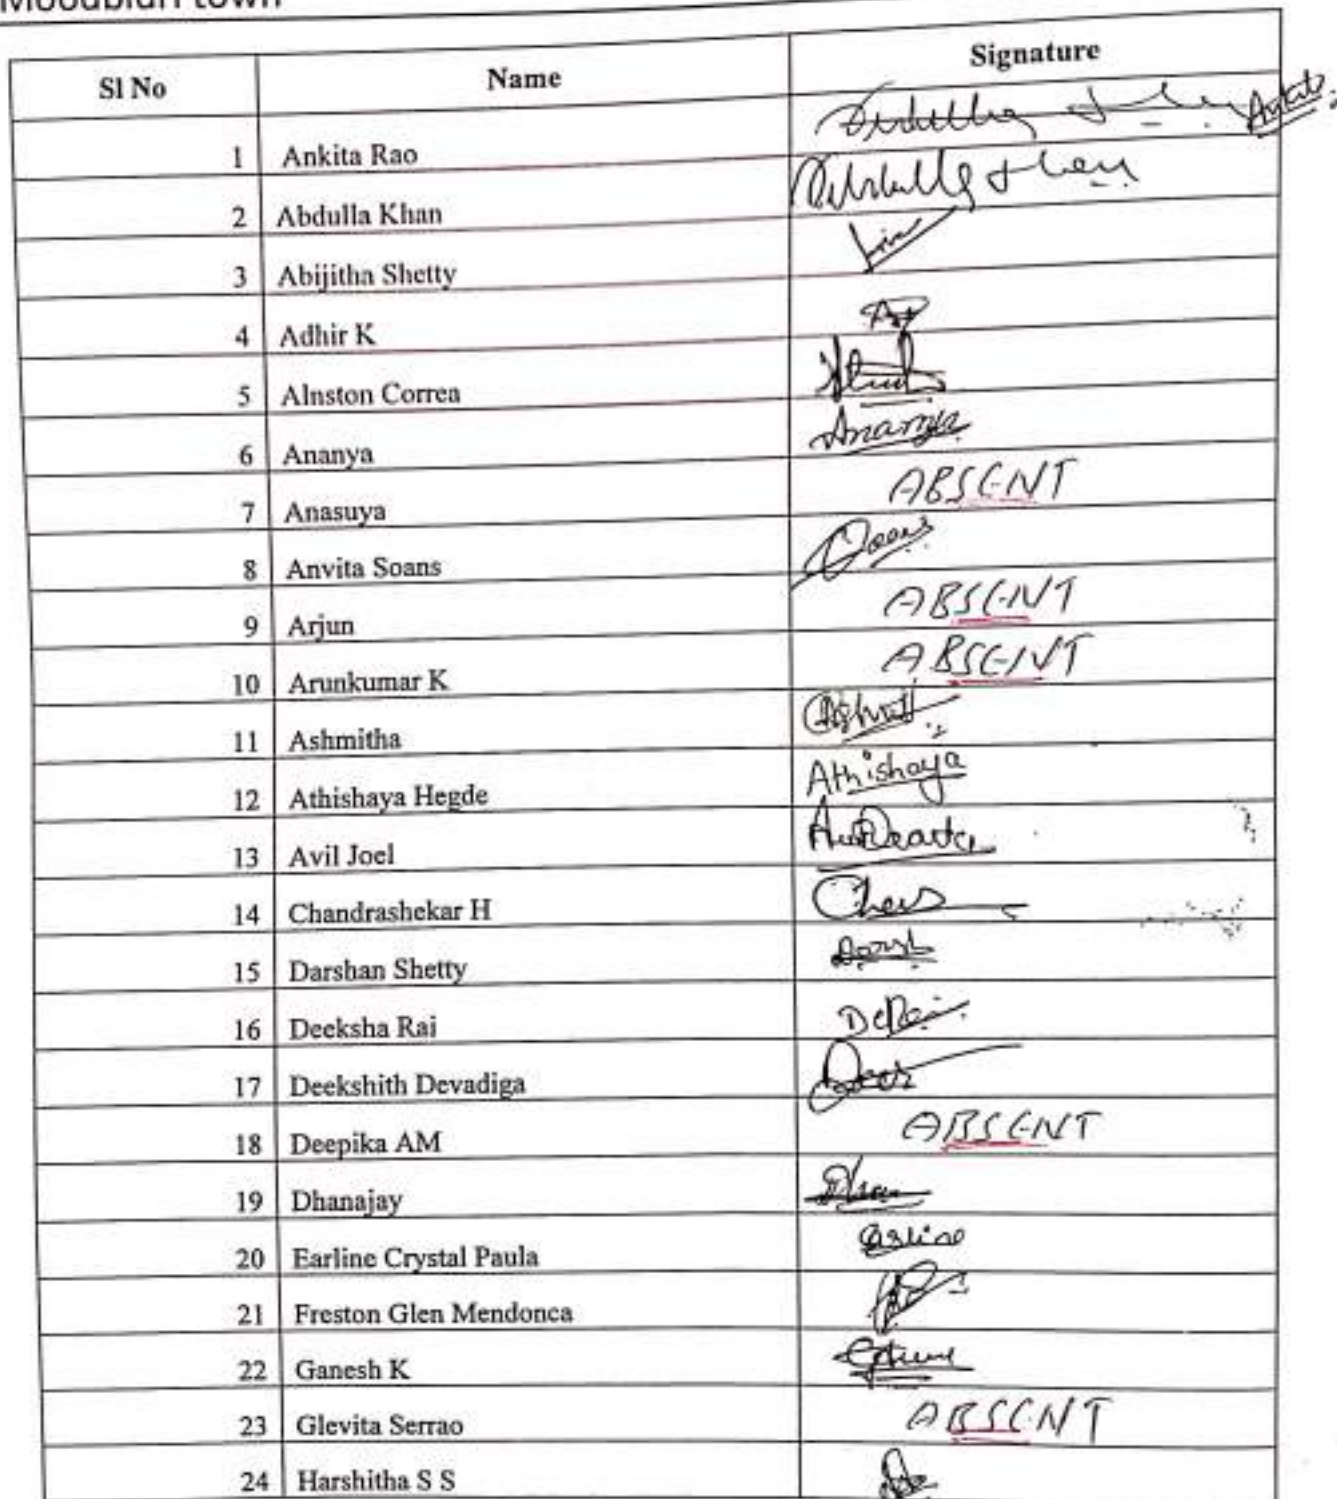 Sl No Name Signature
1 Ankita Rao Abdulla Khan Ankita
2 Abdulla Khan Abdulla Khan
3 Abijitha Shetty
4 Adhir K
5 Alnston Correa
6 Ananya Ananya
7 Anasuya ABSENT
8 Anvita Soans
9 Arjun ABSENT
10 Arunkumar K ABSENT
11 Ashmitha
12 Athishaya Hegde Athishaya
13 Avil Joel
14 Chandrashekar H
15 Darshan Shetty
16 Deeksha Rai
17 Deekshith Devadiga
18 Deepika AM ABSENT
19 Dhanajay
20 Earline Crystal Paula Earline
21 Freston Glen Mendonca
22 Ganesh K
23 Glevita Serrao ABSENT
24 Harshitha S S